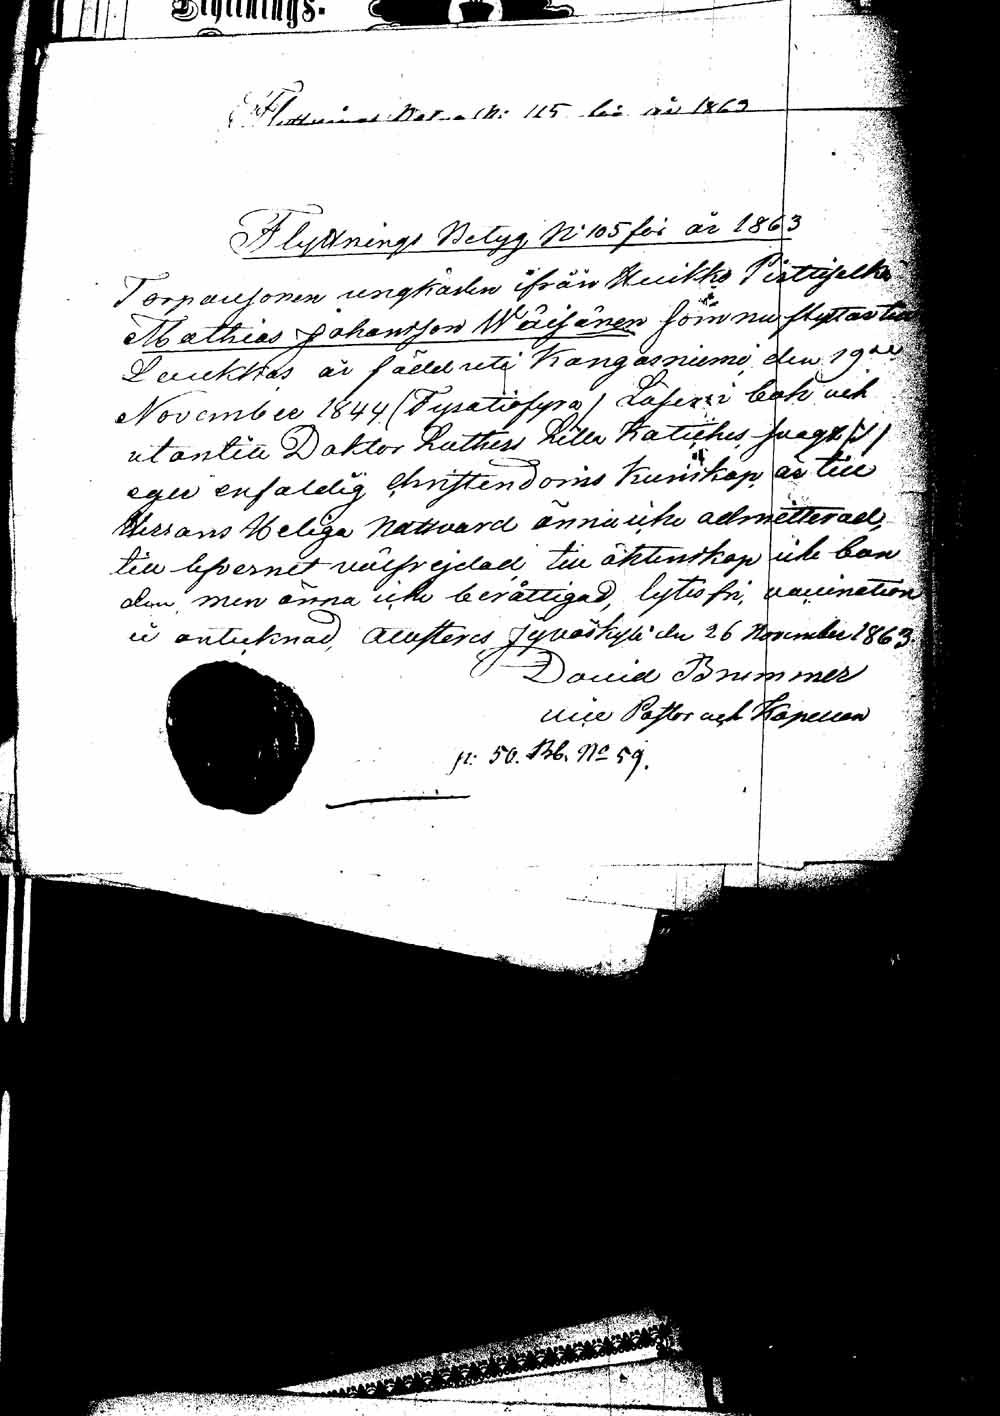 Flyttnings.
Flyttnings Betyg N: 115 för år 1863
Flyttnings Betyg N: 105 för år 1863
Torparesonen ungkarlen ifrån Huikko
Mathias Johansson Wäisänen som nu flyttar till
Leukkas är född uti Kangasniemi den 19de
November 1844 (Fyratiofyra) Läser i bok och
utantill Doktor Luthers Lilla Kateches svagt
eger enfaldig christendoms kunskap är till
Herrans Heliga Nattvard ännu icke admitterad,
till lefvernet välfrejdad till äktenskap icke bun
den, men ännu icke berättigad, lytesfri, vaccination
är antecknad, attesteras Jyväskylä den 26 November 1863.
David Brummer
vice Pastor och Kapellan
p: 50. Bb. No 59.